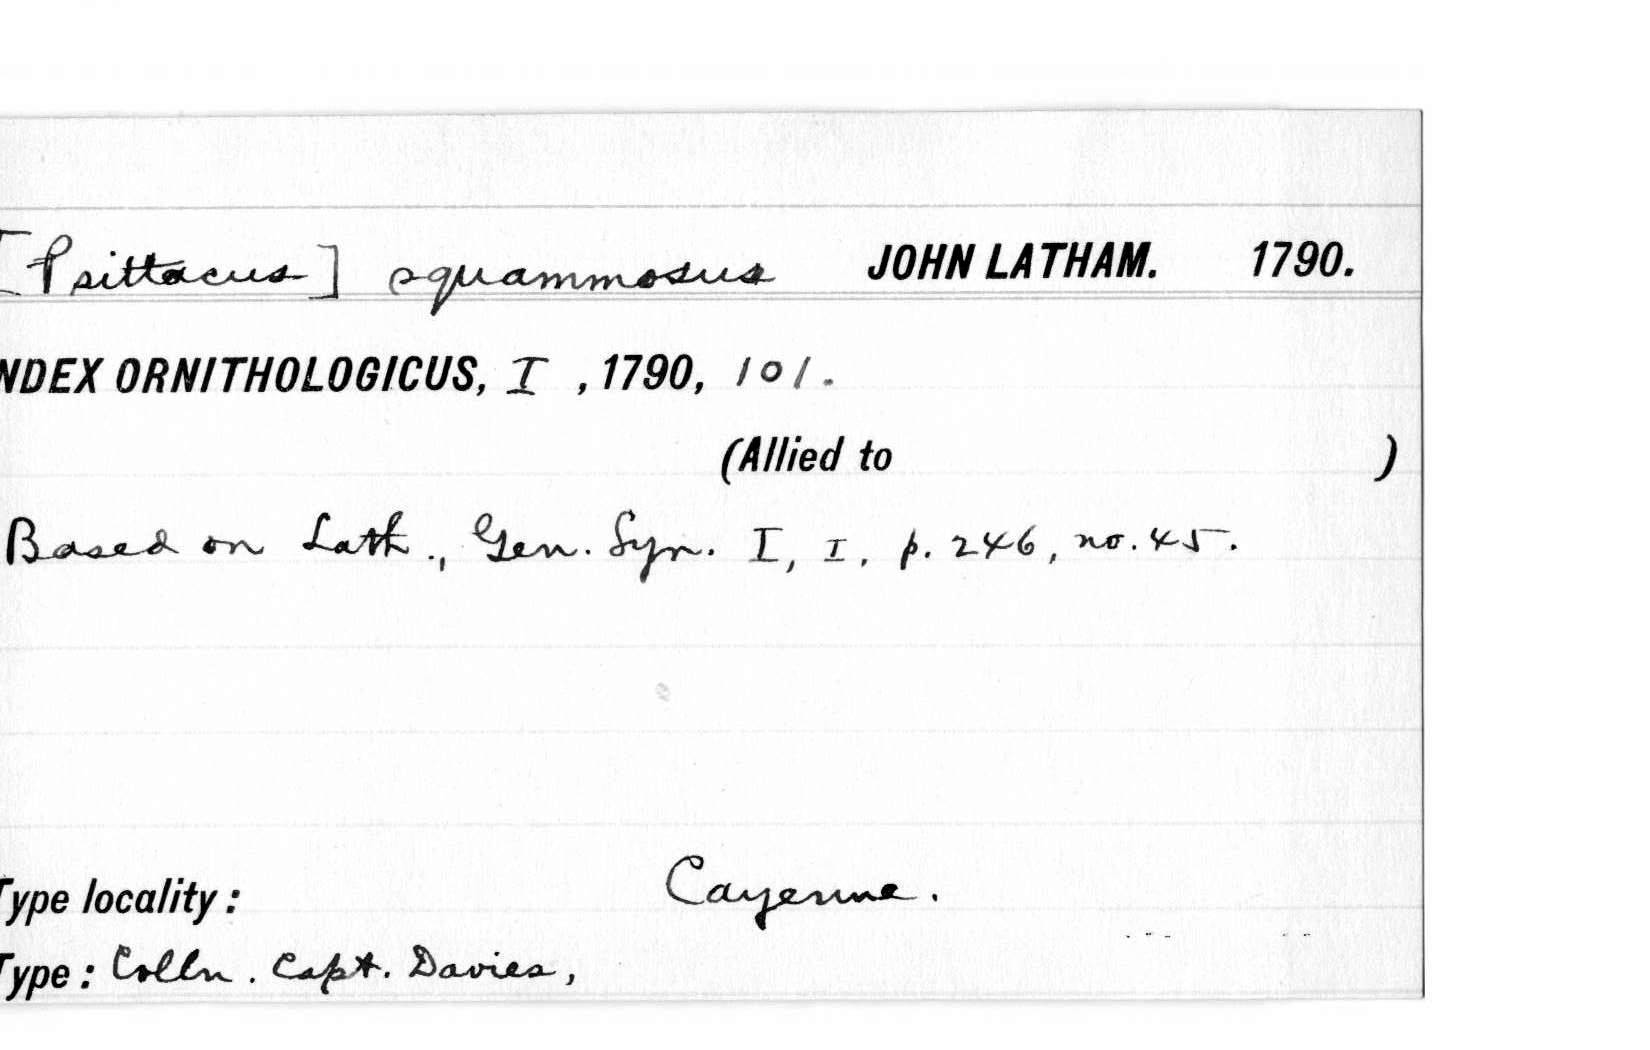 [Psittacus] squammosus JOHN LATHAM. 1790.
NDEX ORNITHOLOGICUS, I , 1790, 101.
(Allied to )
Based on Lath., Gen. Syn. I, I, p. 246, no. 45.
Type locality: Cayenne.
Type: Colln. Capt. Davies,